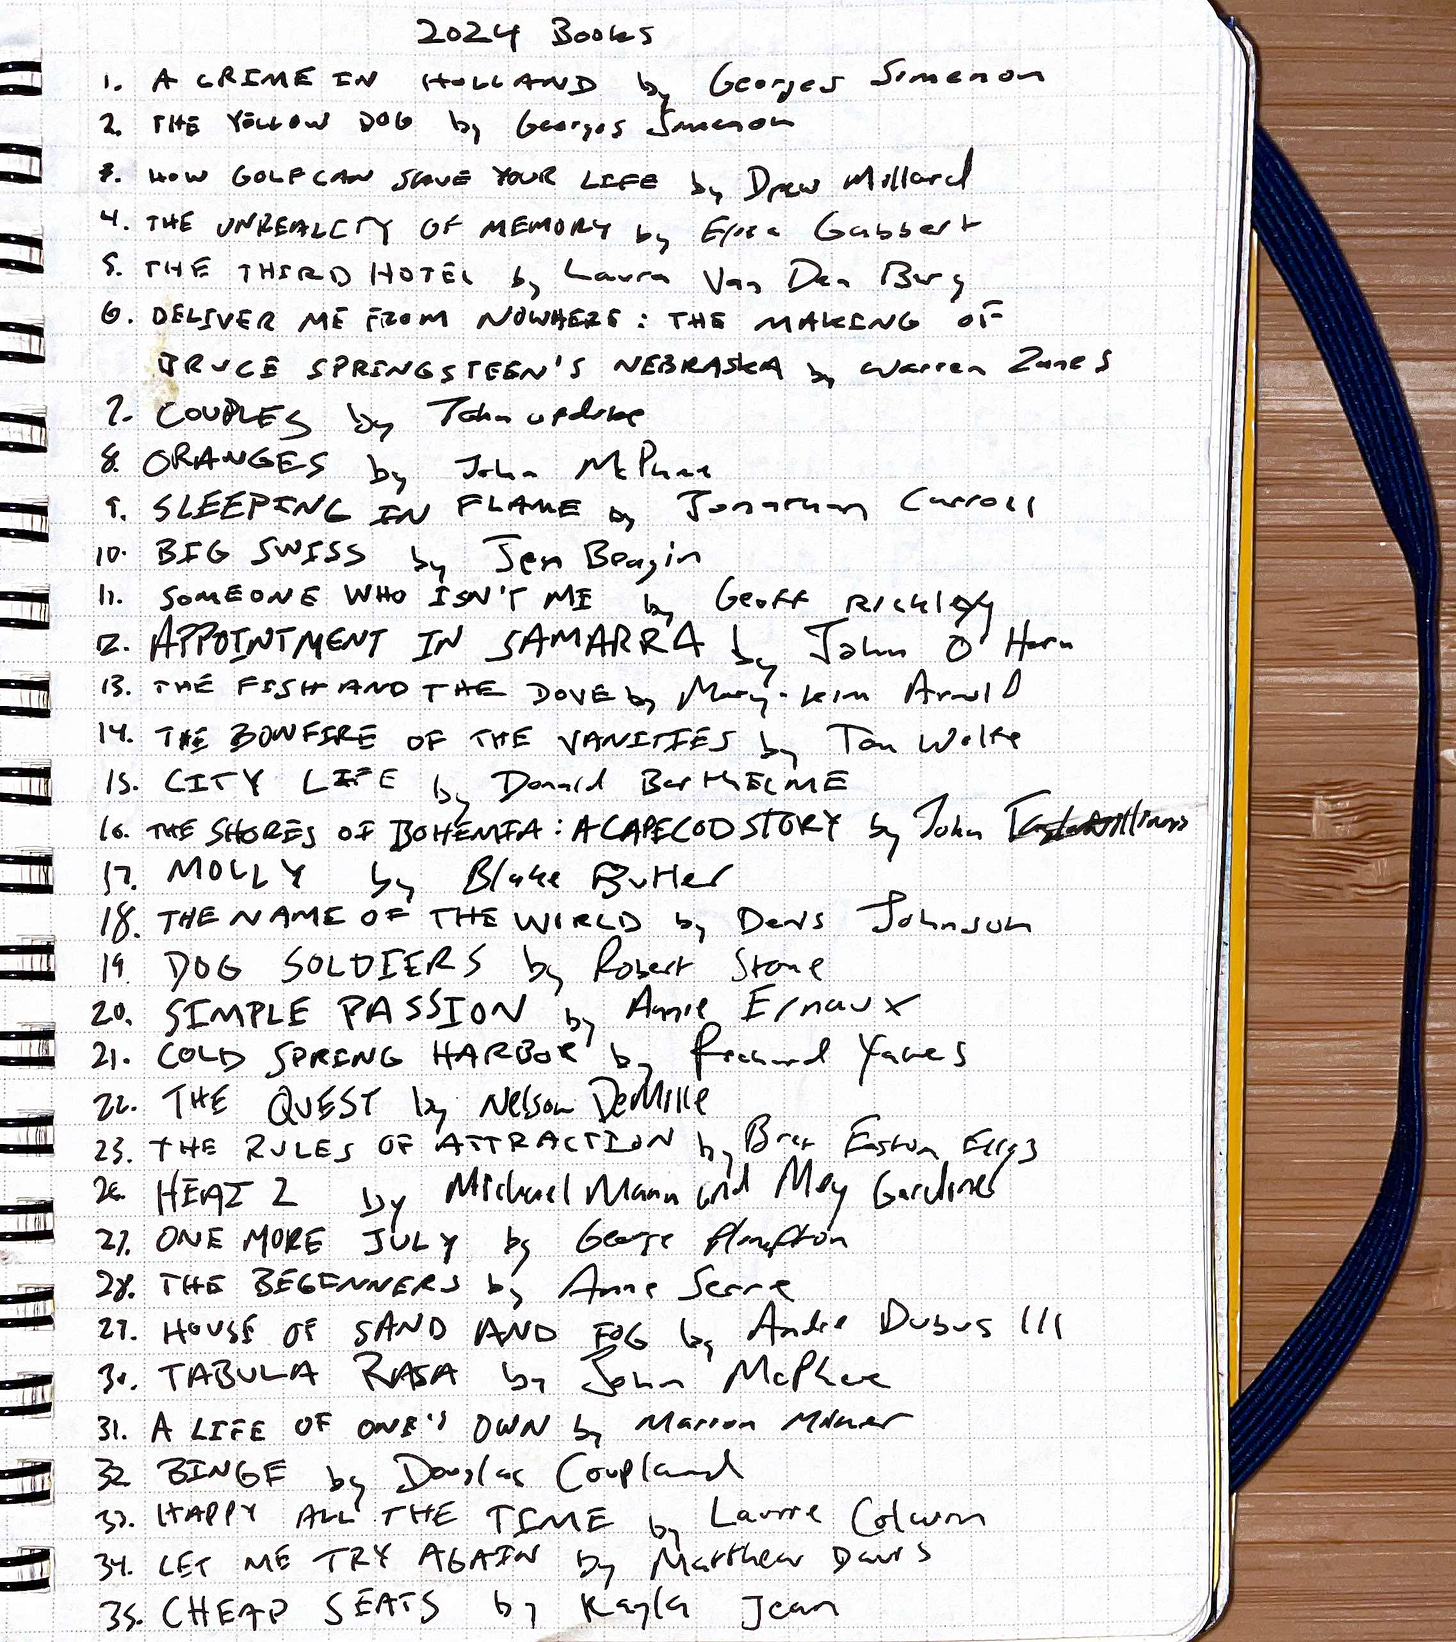 2024 Books
1. A CRIME IN HOLLAND by Georges Simenon
2. THE YELLOW DOG by Georges Simenon
3. HOW GOLF CAN SAVE YOUR LIFE by Drew Millard
4. THE UNREALITY OF MEMORY by Elisa Gabbert
5. THE THIRD HOTEL by Laura Van Den Berg
6. DELIVER ME FROM NOWHERE: THE MAKING OF
BRUCE SPRINGSTEEN'S NEBRASKA by Warren Zanes
7. COUPLES by John Updike
8. ORANGES by John McPhee
9. SLEEPING IN FLAME by Jonathan Carroll
10. BIG SWISS by Jen Beagin
11. SOMEONE WHO ISN'T ME by Geoff RICKLEY
12. APPOINTMENT IN SAMARRA by John O'Hara
13. THE FISH AND THE DOVE by Mary-Kim Arnold
14. THE BONFIRE OF THE VANITIES by Tom Wolfe
15. CITY LIFE by Donald BARTHELME
16. THE SHORES OF BOHEMIA: A CAPE COD STORY by John Taylor Williams
17. MOLLY by Blake Butler
18. THE NAME OF THE WORLD by Denis Johnson
19. DOG SOLDIERS by Robert Stone
20. SIMPLE PASSION by Annie Ernaux
21. COLD SPRING HARBOR by Richard Yates
22. THE QUEST by Nelson DeMille
23. THE RULES OF ATTRACTION by Bret Easton Ellis
26. HEAT 2 by Michael Mann and Meg Gardiner
27. ONE MORE JULY by George Plimpton
28. THE BEGINNERS by Anne Serre
29. HOUSE OF SAND AND FOG by Andre Dubus III
30. TABULA RASA by John McPhee
31. A LIFE OF ONE'S OWN by Marion Milner
32. BINGE by Douglas Coupland
33. HAPPY ALL THE TIME by Laurie Colwin
34. LET ME TRY AGAIN by Matthew Davis
35. CHEAP SEATS by Kayla Jean